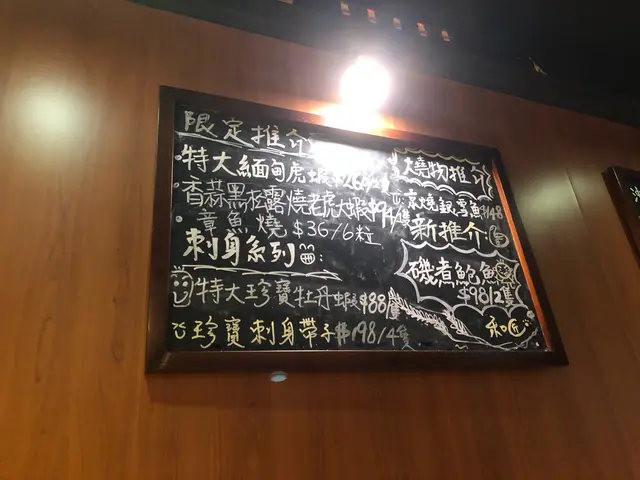 限定推介
·特大緬甸虎蝦
·香蒜黑松露燒老虎大蝦$94/隻
·章魚燒 $36/6粒
刺身系列:
特大珍寶牡丹蝦$88/隻
珍寶刺身帶子$198/4隻
燒物推介
京燒銀雪魚$148
新推介:
磯煮鮑魚
$98/2隻
和匠